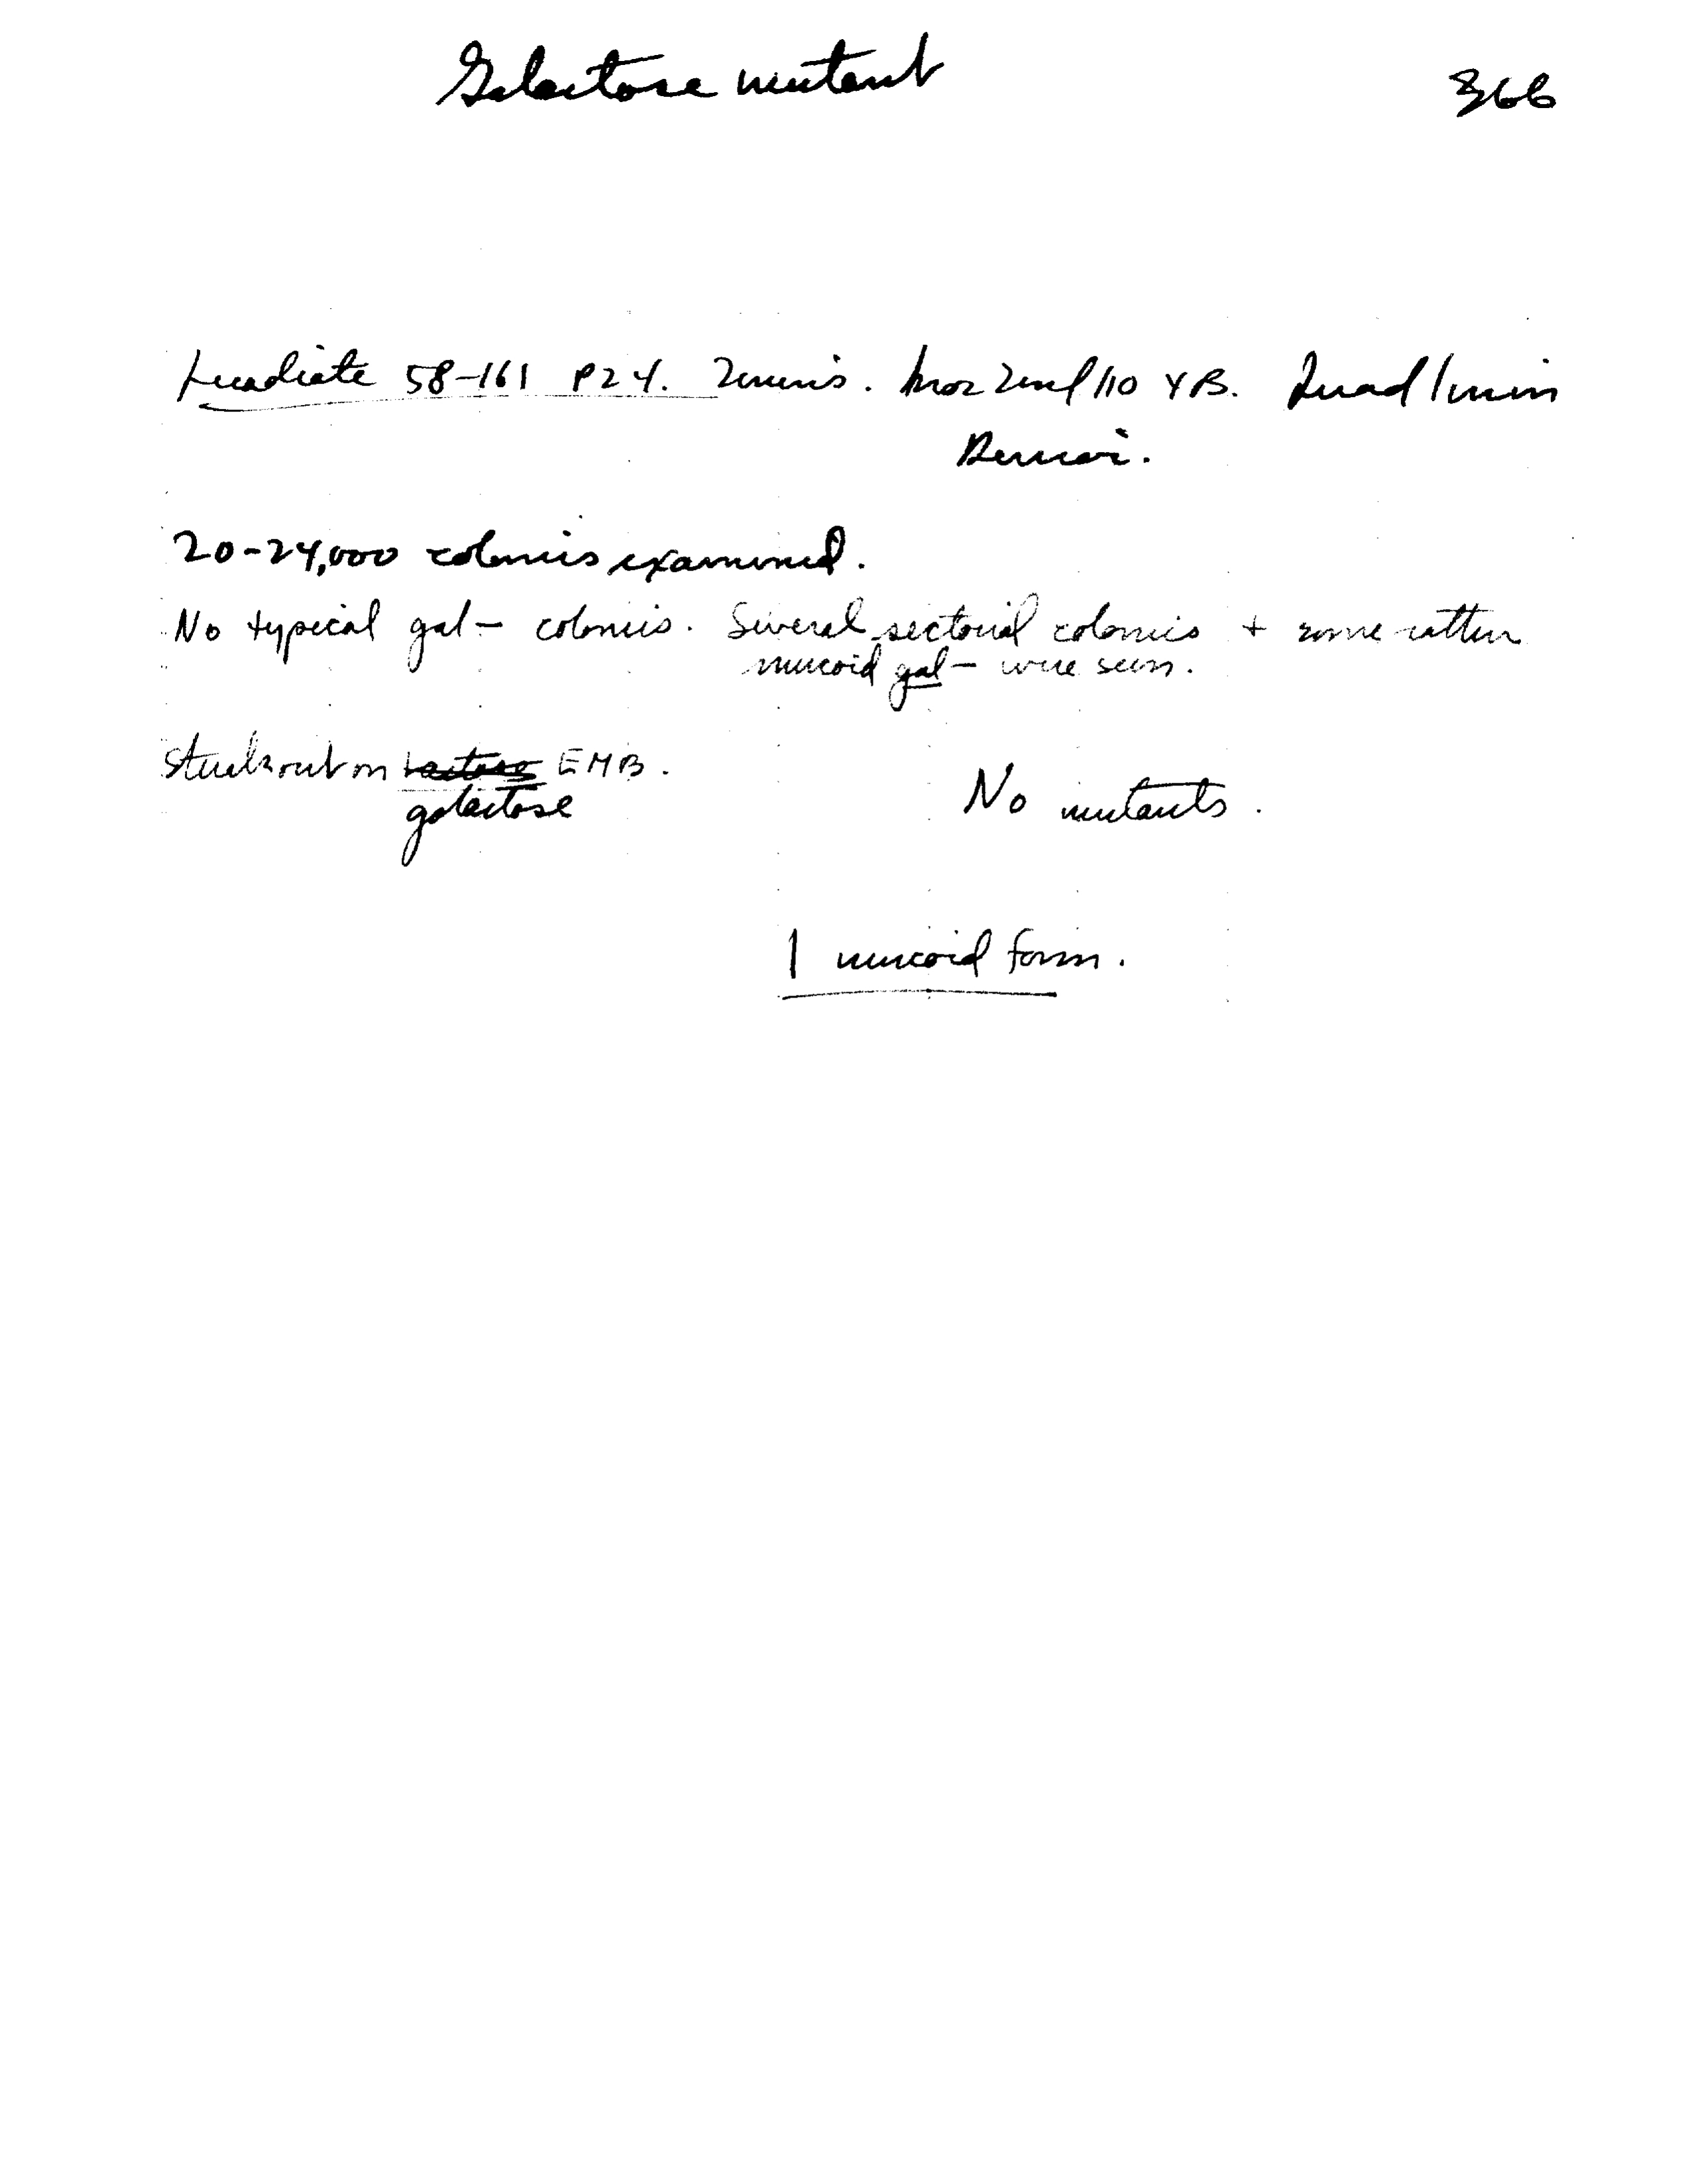 Galactose mutant 366
Irradiate 58-161 P24. 2 min. 2ml/10 YB. 1 min
20-24,000 colonies examined.
No typical gal- colonies. Several sectorial colonies + some rather
mucoid gal- were seen.
Streak out on lactose EMB.
galactose
No mutants.
1 mucoid form.